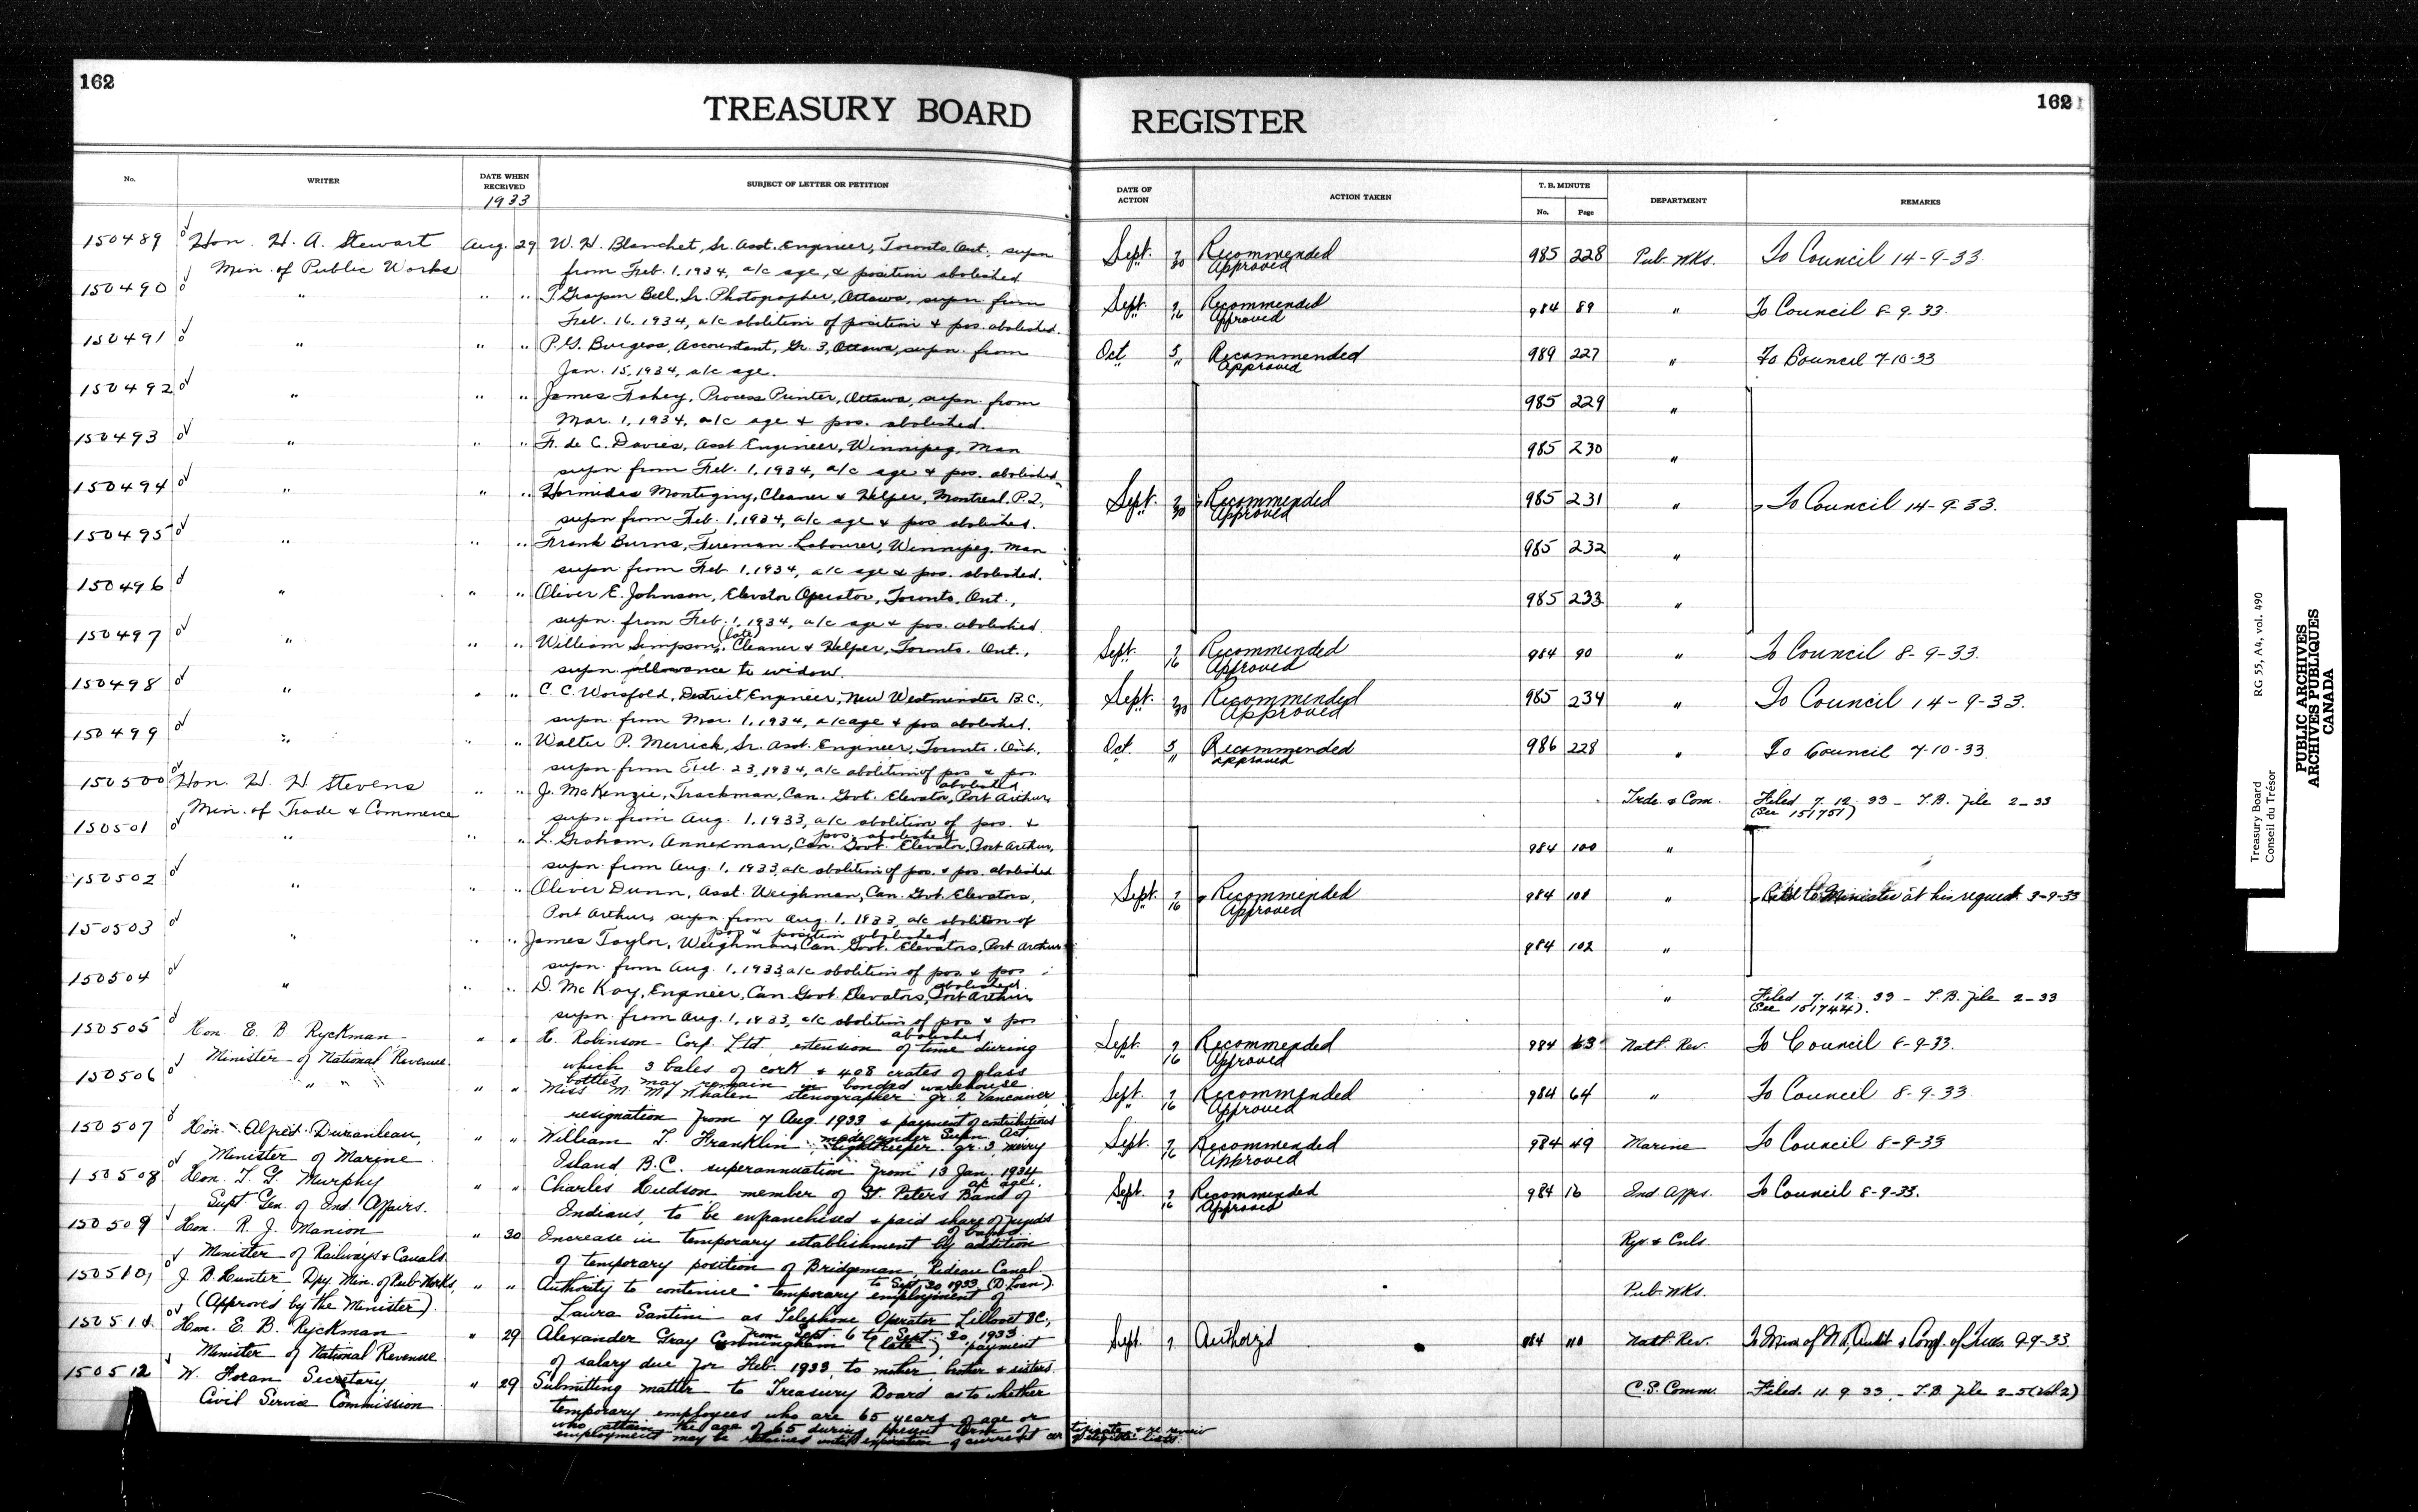 162
TREASURY BOARD
No.
WRITER
DATE WHEN RECEIVED
1933
SUBJECT OF LETTER OR PETITION
150489 Hon. H. A. Stewart Aug. 29 W. H. Blanchet, Sr. Asst. Engineer, Toronto, Ont., supn
Min. of Public Works from Feb. 1, 1934, a/c age, & position abolished
150490 " " " T. Grayson Bell, Sr. Photographer, Ottawa, supn. from
Feb. 16, 1934, a/c abolition of position & pos. abolished.
150491 " " " P. G. Burgess, Accountant, Gr. 3, Ottawa, supn. from
Jan. 15, 1934, a/c age.
150492 " " " James Fahey, Process Printer, Ottawa, supn. from
Mar. 1, 1934, a/c age & pos. abolished.
150493 " " " F. de C. Davies, Asst Engineer, Winnipeg, Man
supn from Feb. 1, 1934, a/c age & pos. abolished
150494 " " " Hormidas Montigny, Cleaner & Helper, Montreal, P.Q.,
supn from Feb. 1, 1934, a/c age & pos abolished.
150495 " " " Frank Burns, Fireman-Labourer, Winnipeg, Man
supn from Feb 1, 1934, a/c age & pos. abolished.
150496 " " " Oliver E. Johnson, Elevator Operator, Toronto, Ont.,
supn. from Feb. 1, 1934, a/c age & pos. abolished.
150497 " " " William Simpson, (late) Cleaner & Helper, Toronto, Ont.,
supn allowance to widow.
150498 " " " C. C. Worsfold, District Engineer, New Westminster B.C.,
supn. from Mar. 1, 1934, a/c age & pos abolished.
150499 " " " Walter P. Merrick, Sr. Asst. Engineer, Toronto, Ont.,
supn from Feb. 23, 1934, a/c abolition of pos & pos.
abolished
150500 Hon. H. H Stevens " " J. McKenzie, Trackman, Can. Govt. Elevator, Port Arthur,
Min. of Trade & Commerce supn from Aug. 1, 1933, a/c abolition of pos. &
pos. abolished
150501 " " " L. Graham, Annexman, Can. Govt. Elevator, Port Arthur,
supn. from Aug. 1, 1933, a/c abolition of pos. & pos. abolished
150502 " " " Oliver Dunn, Asst. Weighman, Can. Govt. Elevators,
Port Arthur, supn from Aug. 1, 1933, a/c abolition of
pos & position abolished
150503 " " " James Taylor, Weighman, Can. Govt. Elevators, Port Arthur
supn. from Aug. 1, 1933, a/c abolition of pos & pos
abolished.
150504 " " " D. McKay, Engineer, Can. Govt. Elevators, Port Arthur
supn. from Aug. 1, 1933, a/c abolition of pos & pos
abolished
150505 Hon. E. B Ryckman " " Robinson Corp. Ltd. extension of time during
Minister of National Revenue. which 3 bales of cork & 408 crates of glass
bottles may remain in bonded warehouse.
150506 " " " " " Miss M. M. Whalen stenographer gr. 2 Vancouver
resignation from 7 Aug. 1933 & payment of contributions
made under Supn. Act
150507 Hon. Alfred Duranleau, " " William T. Franklin Lightkeeper gr. 3, Merry
Minister of Marine. Island, B.C. superannuation from 13 Jan. 1934
a/c age.
150508 Hon. T. G. Murphy " " Charles Hudson member of St. Peters Band of
Supt. Gen. of Ind. Affairs. Indians, to be enfranchised & paid share of funds
of band.
150509 Hon. R. J. Manion " 30 Increase in temporary establishment by addition
Minister of Railways & Canals of temporary position of Bridgeman, Rideau Canal
to Sept. 30 1933 (D. Loan).
150510 J. B. Hunter, Dpy. Min. of Pub. Works, " " Authority to continue temporary employment of
(Approved by the Minister). Laura Santini as Telephone Operator Lillooet B.C.,
from Sept. 6 to Sept. 30, 1933
150511 Hon. E. B. Ryckman " 29 Alexander Gray Cunningham (late) payment
Minister of National Revenue of salary due for Feb. 1933, to mother, brother & sisters.
150512 W. Foran Secretary " 29 Submitting matter to Treasury Board as to whether
Civil Service Commission temporary employees who are 65 years of age or
who attain the age of 65 during present term of
employment may be retained until expiration of current cer
162
REGISTER
DATE OF ACTION
ACTION TAKEN
T. B. MINUTE
No. Page
DEPARTMENT
REMARKS
Sept. 7 Recommended 985 228 Pub. Wks. To Council 14-9-33
" 30 Approved
Sept. 7 Recommended 984 89 " To Council 8-9-33.
" 16 Approved
Oct 5 Recommended 989 227 " To Council 7-10-33
" " Approved
985 229 "
985 230 "
Sept. 7 Recommended 985 231 " To Council 14-9-33.
" 30 Approved
985 232 "
985 233 "
Sept. 7 Recommended 984 90 " To Council 8-9-33.
" 16 Approved
Sept. 7 Recommended 985 234 " To Council 14-9-33.
" 30 Approved
Oct. 5 Recommended 986 228 " To Council 7-10-33
" " approved
Trde. & Com. Filed 7. 12. 33 - T.B. file 2-33
(See 151751)
984 100 "
Sept. 7 Recommended 984 101 " Retd to Minister at his request 9-9-33
" 16 Approved
984 102 "
" Filed 7. 12. 33 - T.B. file 2-33
(See 151744).
Sept. 7 Recommended 984 63 Natl. Rev. To Council 8-9-33.
" 16 Approved
Sept. 7 Recommended 984 64 " To Council 8-9-33
" 16 Approved
Sept. 7 Recommended 984 49 Marine To Council 8-9-33
" 16 Approved
Sept. 7 Recommended 984 16 Ind. Affrs. To Council 8-9-33.
" 16 Approved
Rys. & Cnls.
Pub. Wks.
Sept. 7. Authorized 984 110 Natl. Rev. To Min of N.R., Audit & Comp. of Treas. 9-9-33
C.S. Comm. Filed. 11. 9. 33 - T.B. file 2-5 (Vol 2)
Treasury Board RG 55, A4, vol. 490
Conseil du Trésor
PUBLIC ARCHIVES
ARCHIVES PUBLIQUES
CANADA